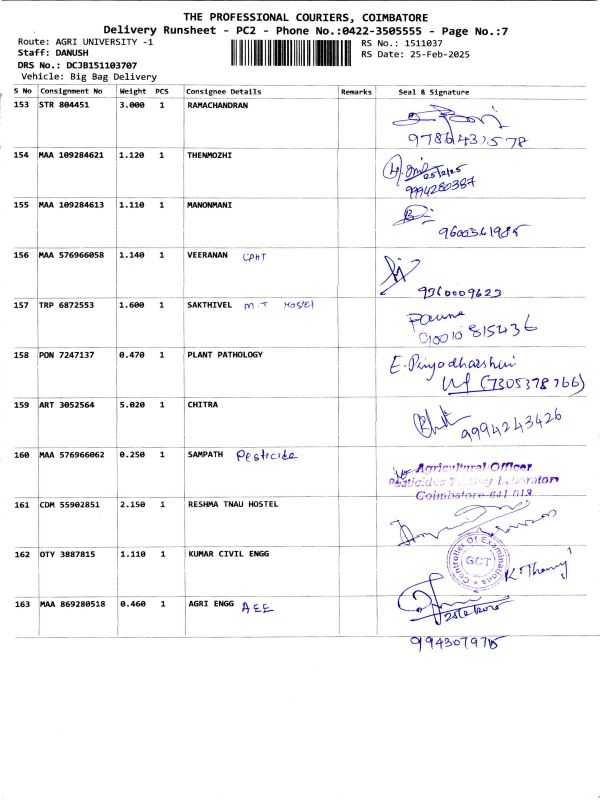 THE PROFESSIONAL COURIERS, COIMBATORE
Delivery Runsheet - PC2 - Phone No.:0422-3505555 - Page No.:7
Route: AGRI UNIVERSITY -1 RS No.: 1511037
Staff: DANUSH RS Date: 25-Feb-2025
DRS No.: DCJB151103707
Vehicle: Big Bag Delivery
S No Consignment No Weight PCS Consignee Details Remarks Seal & Signature
153 STR 804451 3.000 1 RAMACHANDRAN
154 MAA 109284621 1.120 1 THENMOZHI
25/2/25
9994280387
155 MAA 109284613 1.110 1 MANONMANI
156 MAA 576966058 1.140 1 VEERANAN CPHT
9360009623
157 TRP 6872553 1.600 1 SAKTHIVEL M.T Hostel
158 PON 7247137 0.470 1 PLANT PATHOLOGY E. Priyadharshini
(7305378766)
159 ART 3052564 5.020 1 CHITRA
9994243426
160 MAA 576966062 0.250 1 SAMPATH Pesticide
Agricultural Officer
Pesticides Testing Laboratory
Coimbatore-641 013
161 CDM 55902851 2.150 1 RESHMA TNAU HOSTEL
162 OTY 3887815 1.110 1 KUMAR CIVIL ENGG
Controller Of Examinations
GCT
163 MAA 869280518 0.460 1 AGRI ENGG AEE